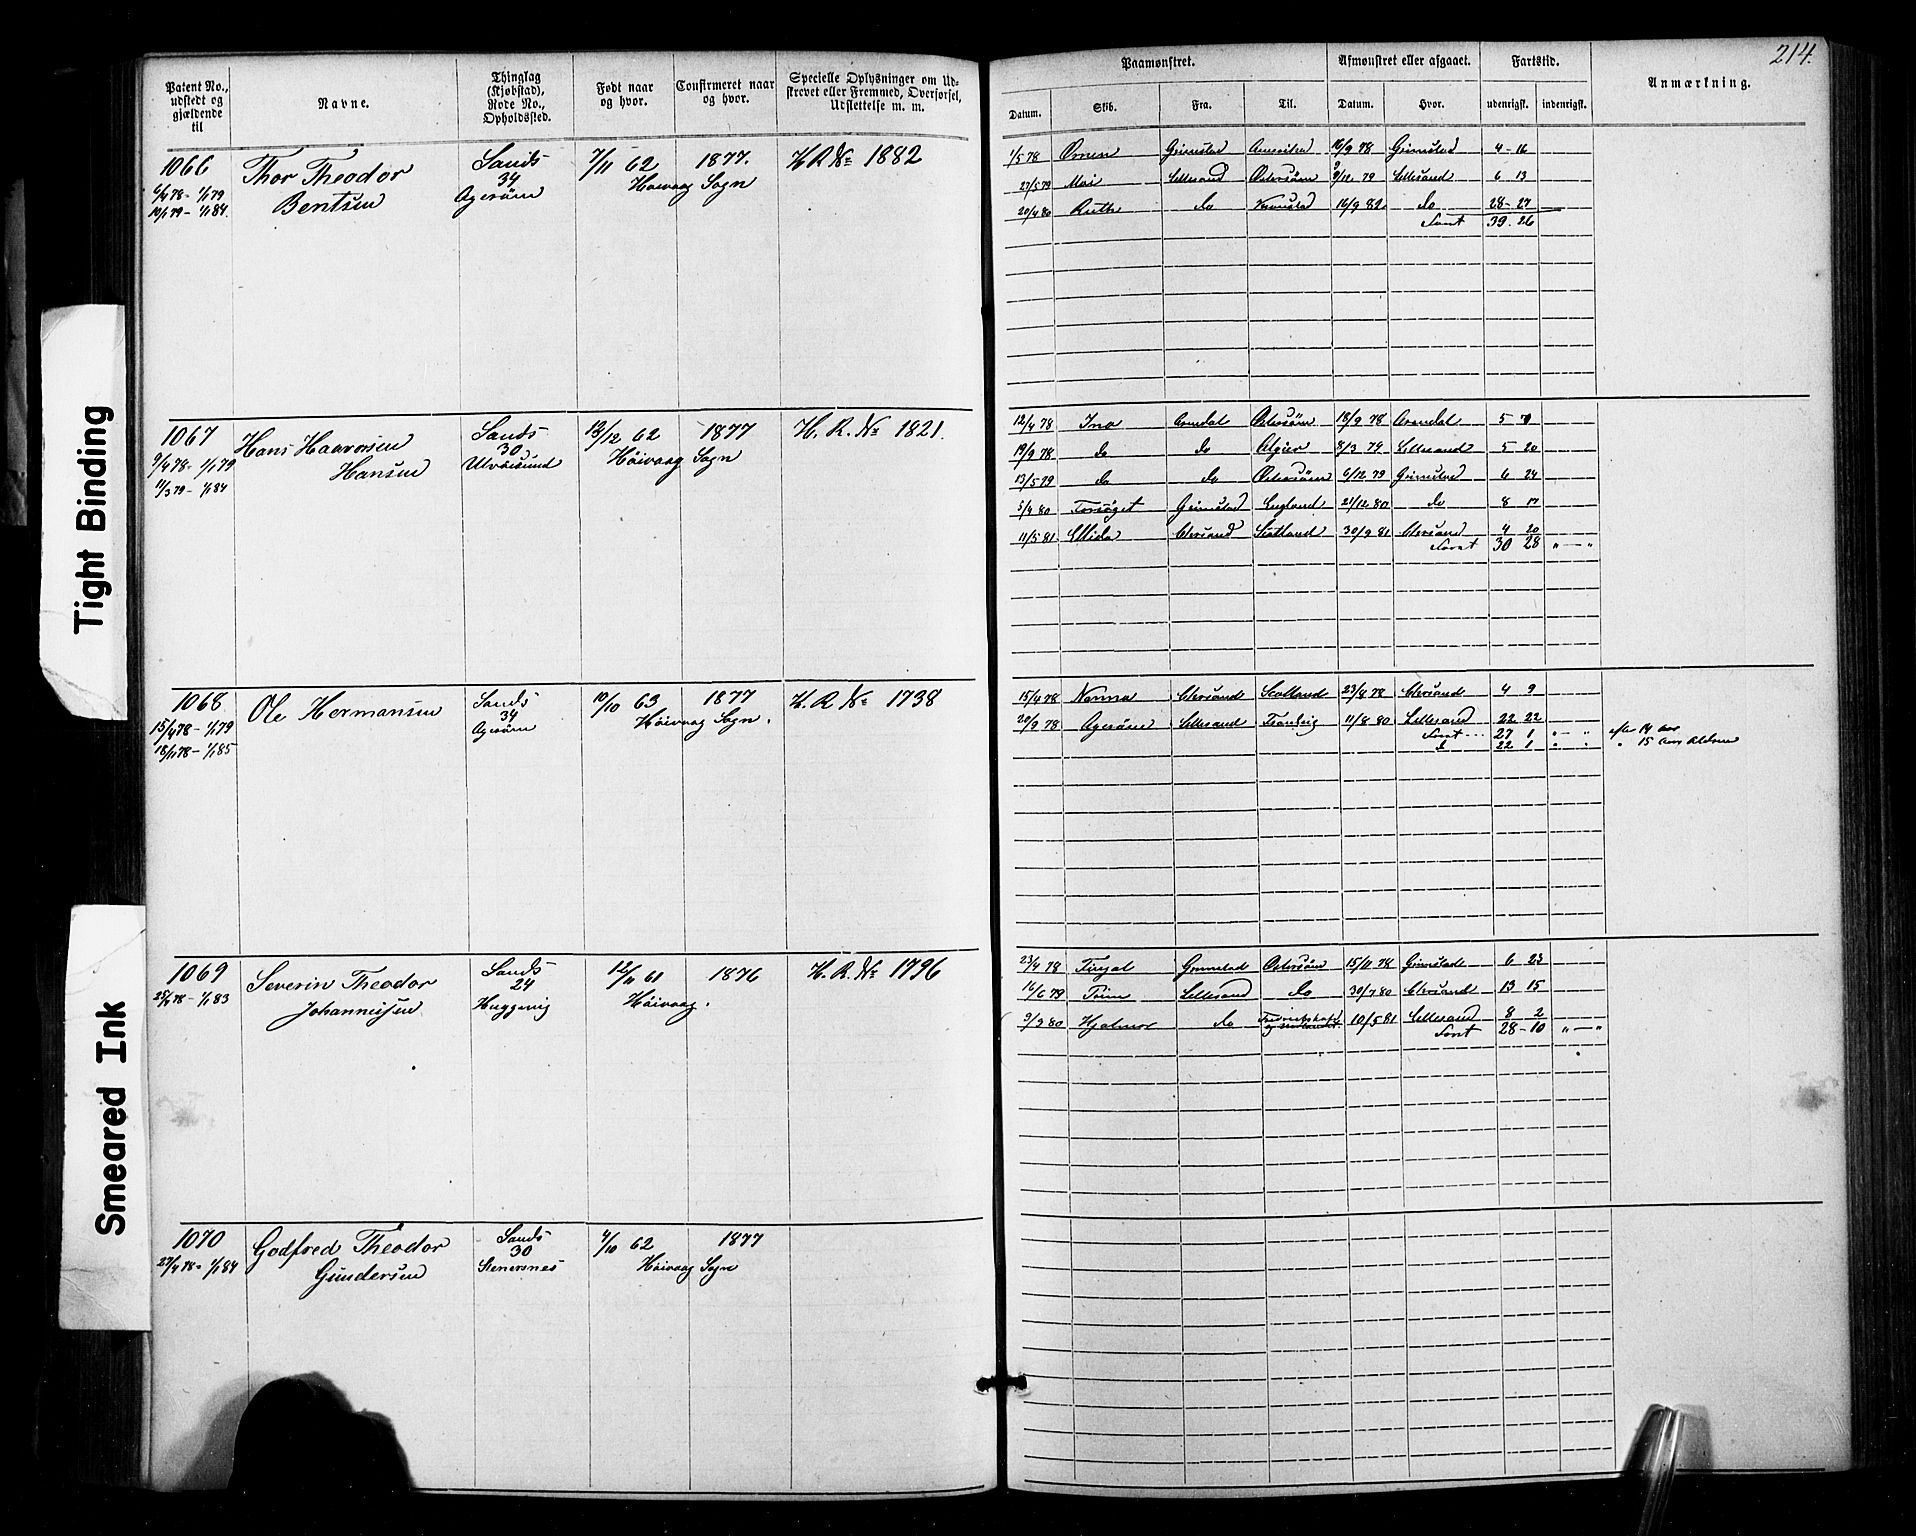 214.
Patent No., udstedt og gjældende til
Navne.
Thinglag (Kjøbstad), Rode No., Opholdssted.
Født naar og hvor.
Confirmeret naar og hvor.
Specielle Oplysninger om Udskrevet eller Fremmed, Overførsel, Udslettelse m. m.
Paamønstret.
Afmønstret eller afgaaet.
Fartstid.
Anmærkning.
Datum. Skib. Fra. Til. Datum. Hvor. udenrigsk. indenrigsk.
1066 Thor Theodor Sands 7/11 62 1877. H. R. No 1882
6/4 78 - 1/1 79 34 Høivaag Sogn
10/1 79 - 1/1 84. Bentsen Agerøen
1/5 78 Ørnen Grimstad 16/9 78 Grimstad 4 - 16
27/5 79 Mai Lillesand Østersøen 9/12 79 Lillesand 6 13
20/4 80 Ruth do 16/9 82 do 28 - 27
Tont 39. 26
1067 Hans Haavorsen Sands 13/12 62 1877 H. R. No 1821.
9/4 78 - 1/1 79 30 Høivaag Sogn
11/3 79 - 1/1 84 Hansen Ulvøisund
12/4 78 Ino Arendal Østersøen 18/9 78 Arendal 5
19/9 78 do do Algier 8/3 79 Lillesand 5 20
13/5 79 do do Østersøen 6/12 79 Grimstad 6 24
5/4 80 Forsøget Grimstad England 21/12 80 do 8 17
11/5 81 Ellida Chrsand Scotland 30/9 81 Chrsand 4 20
30 28 " — "
1068 Ole Hermansen Sands 10/10 63 1877 H. R. No 1738
15/4 78 - 1/1 79 34 Høivaag Sogn.
18/11 78 - 1/1 85 Agerøen
15/4 78 Norma Chrsand Scotland 23/8 78 Chrsand 4 9
20/9 78 Agerøen Lillesand 11/8 80 Lillesand 22 22
27 1 " — " efter 14 Aar
22 1 " " " 15 Aars Alderen
1069 Severin Theodor Sands 12/11 61 1876 H. R. No 1796
25/4 78 - 1/1 83 24 Høivaag.
Johannisen
23/4 78 Grimstad Østersøen 15/11 78 Grimstad 6 23
16/6 79 Lillesand do 30/7 80 Chrsand 13 15
9/9 80 Hjalmar do 10/5 81 Lillesand 8 2
28 - 10 " — "
1070 Godfred Theodor Sands 4/10 62 1877
27/4 78 - 1/1 84 30 Høivaag Sogn
Gundersen Stenersnes
Tight Binding
Smeared Ink